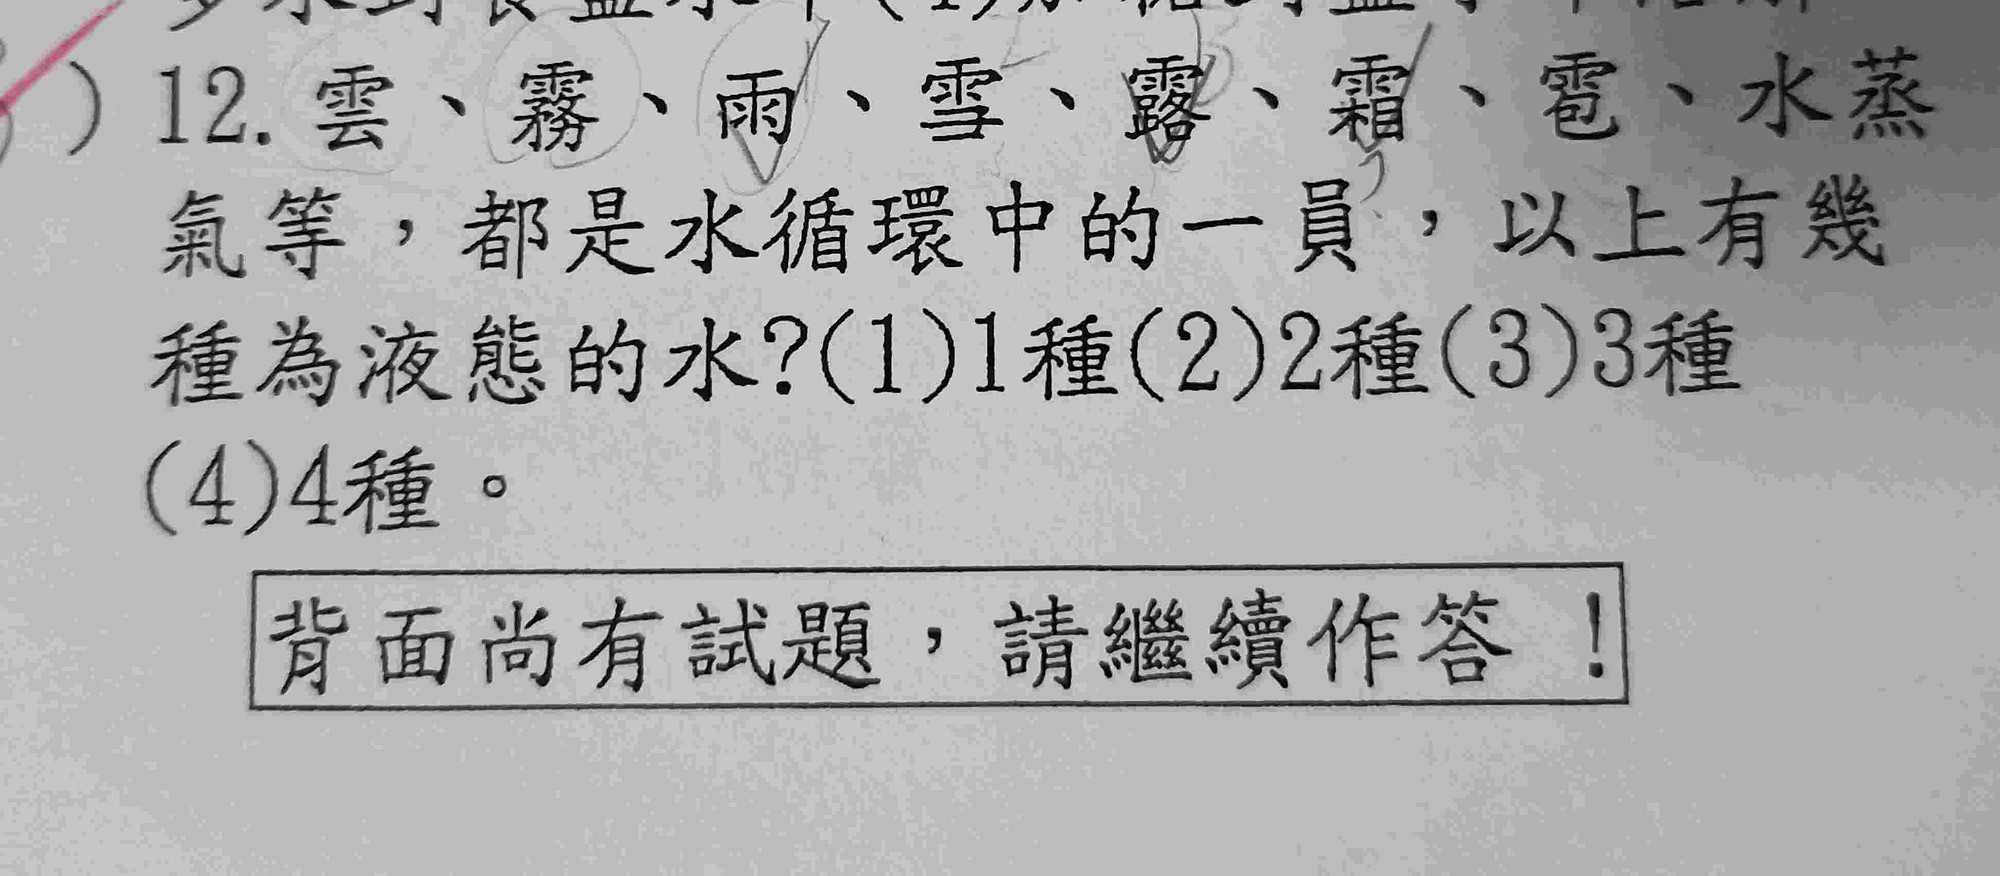 )12.雲、霧、雨、雪、露、霜、雹、水蒸
氣等，都是水循環中的一員，以上有幾
種為液態的水?(1)1種(2)2種(3)3種
(4)4種。
背面尚有試題，請繼續作答！